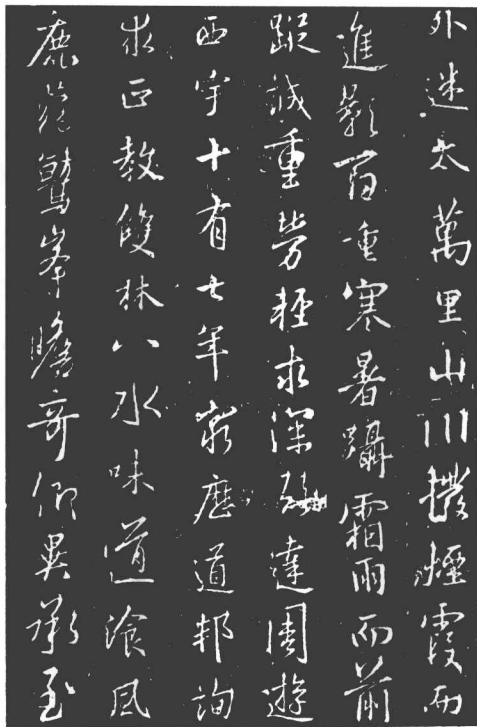 外迷太萬里山川撥煙霞而
進影百重寒暑躡霜雨而前
蹤誠重勞輕求深願達周遊
西宇十有七年窮歷道邦詢
求正教雙林八水味道飡風
鹿菀鷲峯瞻奇仰異承至